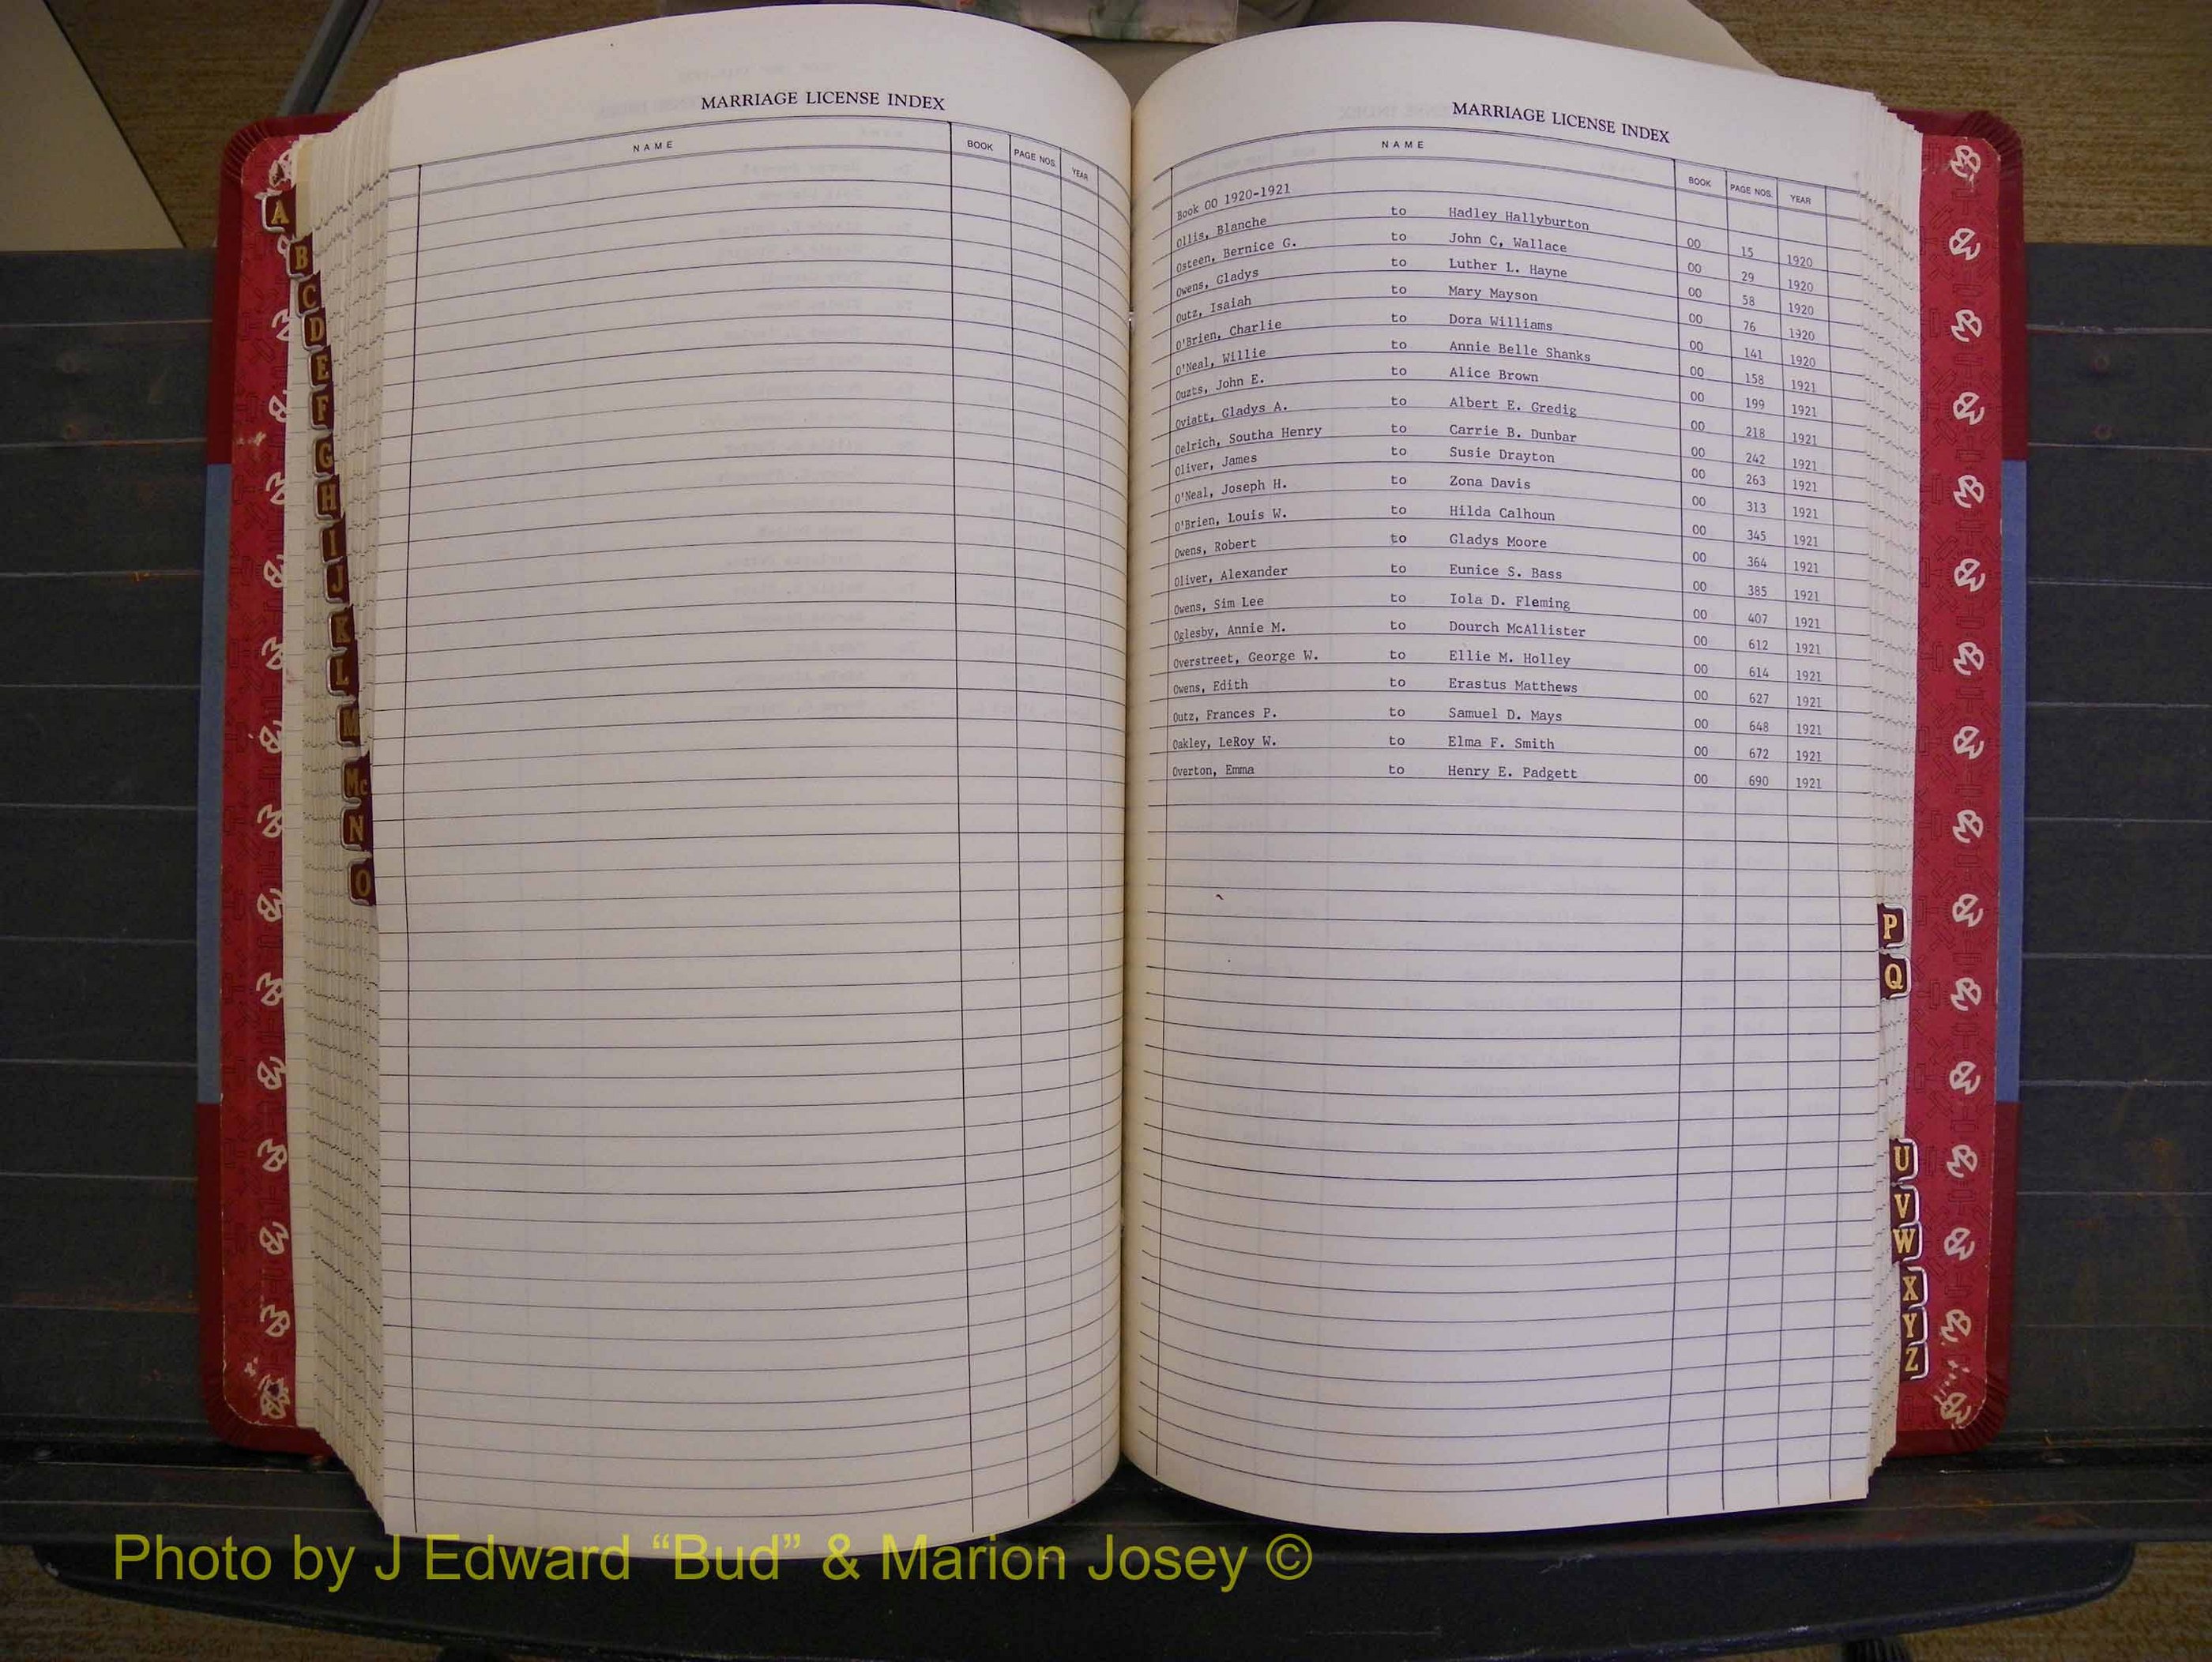 MARRIAGE LICENSE INDEX
NAME BOOK PAGE NOS. YEAR
A
B
C
D
E
F
G
H
I
J
K
L
M
Mc
N
O
MARRIAGE LICENSE INDEX
NAME BOOK PAGE NOS. YEAR
Book OO 1920-1921
Ollis, Blanche to Hadley Hallyburton OO 15 1920
Osteen, Bernice G. to John C, Wallace OO 29 1920
Owens, Gladys to Luther L. Hayne OO 58 1920
Outz, Isaiah to Mary Mayson OO 76 1920
O'Brien, Charlie to Dora Williams OO 141 1920
O'Neal, Willie to Annie Belle Shanks OO 158 1921
Ouzts, John E. to Alice Brown OO 199 1921
Oviatt, Gladys A. to Albert E. Gredig OO 218 1921
Oelrich, Southa Henry to Carrie B. Dunbar OO 242 1921
Oliver, James to Susie Drayton OO 263 1921
O'Neal, Joseph H. to Zona Davis OO 313 1921
O'Brien, Louis W. to Hilda Calhoun OO 345 1921
Owens, Robert to Gladys Moore OO 364 1921
Oliver, Alexander to Eunice S. Bass OO 385 1921
Owens, Sim Lee to Iola D. Fleming OO 407 1921
Oglesby, Annie M. to Dourch McAllister OO 612 1921
Overstreet, George W. to Ellie M. Holley OO 614 1921
Owens, Edith to Erastus Matthews OO 627 1921
Outz, Frances P. to Samuel D. Mays OO 648 1921
Oakley, LeRoy W. to Elma F. Smith OO 672 1921
Overton, Emma to Henry E. Padgett OO 690 1921
P
Q
U
V
W
X
Y
Z
Photo by J Edward “Bud” & Marion Josey ©